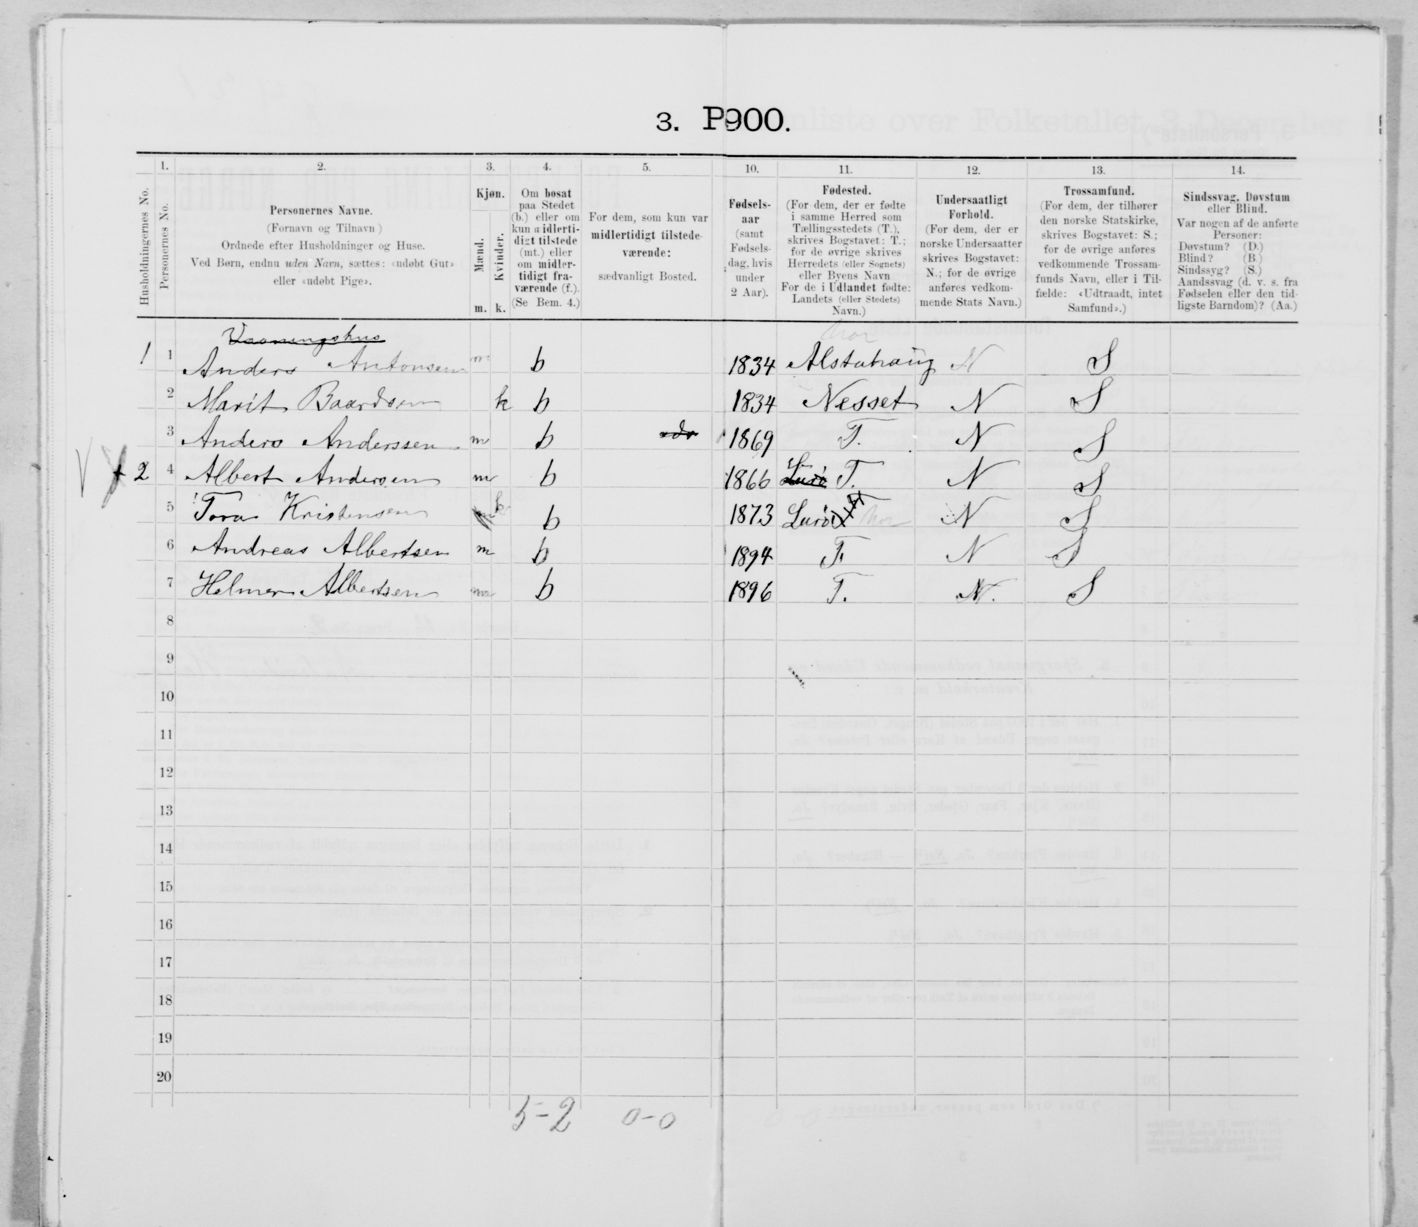 3. P900.
1. 2. 3. 4. 5. 10. 11. 12. 13. 14.
Husholdningernes No.
Personernes No.
Personernes Navne.
(Fornavn og Tilnavn)
Ordnede efter Husholdninger og Huse.
Ved Børn, endnu uden Navn, sættes: «udøbt Gut»
eller «udøbt Pige».
Kjøn.
Mænd.
Kvinder.
m. k.
Om bosat
paa Stedet
(b.) eller om
kun midlerti-
digt tilstede
(mt.) eller
om midler-
tidigt fra-
værende (f.).
(Se Bem. 4.)
For dem, som kun var
midlertidigt tilstede-
værende:
sædvanligt Bosted.
Fødsels-
aar
(samt
Fødsels-
dag, hvis
under
2 Aar).
Fødested.
(For dem, der er fødte
i samme Herred som
Tællingsstedets (T.),
skrives Bogstavet: T.;
for de øvrige skrives
Herredets (eller Sognets)
eller Byens Navn
For de i Udlandet fødte:
Landets (eller Stedets)
Navn.)
Undersaatligt
Forhold.
(For dem, der er
norske Undersaatter
skrives Bogstavet:
N.; for de øvrige
anføres vedkom-
mende Stats Navn.)
Trossamfund.
(For dem, der tilhører
den norske Statskirke,
skrives Bogstavet: S.;
for de øvrige anføres
vedkommende Trossam-
funds Navn, eller i Til-
fælde: «Udtraadt, intet
Samfund».)
Sindssvag, Døvstum
eller Blind.
Var nogen af de anførte
Personer:
Døvstum? (D.)
Blind? (B.)
Sindssyg? (S.)
Aandssvag (d. v. s. fra
Fødselen eller den tid-
ligste Barndom)? (Aa.)
Vaaningshus
1 1 Anders Antonsen m b 1834 Alstahaug N S
2 Marit Baardsen k b 1834 Nesset N S
3 Anders Anderssen m b 1869 T. N S
2 4 Albert Andersen m b 1866 Lurø T. N S
5 Tora Kristensen k b 1873 Lurø N S
6 Andreas Albertsen m b 1894 T. N S
7 Helmer Albertsen m b 1896 T. N. S
8
9
10
11
12
13
14
15
16
17
18
19
20
5-2 0-0